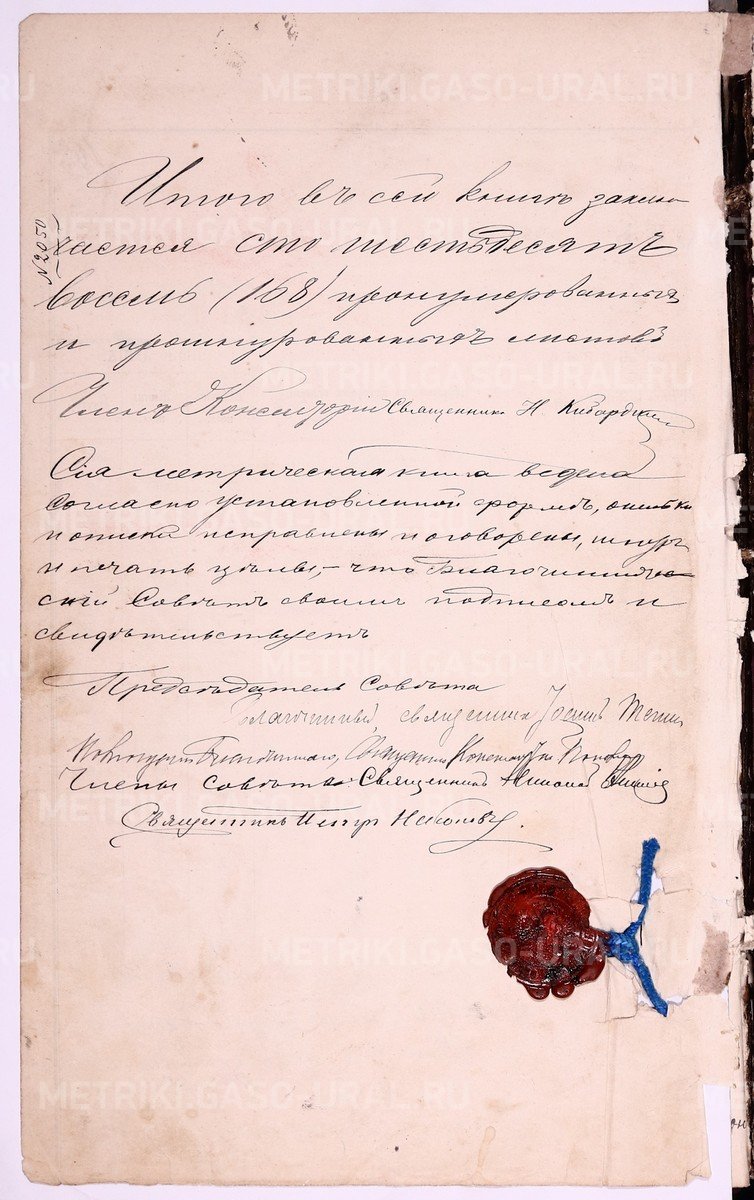 METRIKI.GASO-URAL.RU
№ 2050
Итого въ сей книгѣ заклю
чается сто шестьдесятъ
восемь (168) пронумерованныхъ
и прошнурованныхъ листовъ
Членъ Консисторіи Священникъ Н
Сія метрическая книга ведена
согласно установленной формѣ, ошибки
и описки исправлены и оговорены, шнуръ
и печать цѣлы, – что Благочинниче
скій Совѣтъ своимъ подписомъ и
свидѣтельствуетъ
Предсѣдатель Совѣта
Благочинный священникъ Іоаннъ
Благочиннаго, Священникъ
Члены совѣта: Священникъ Николай
Священникъ Петръ